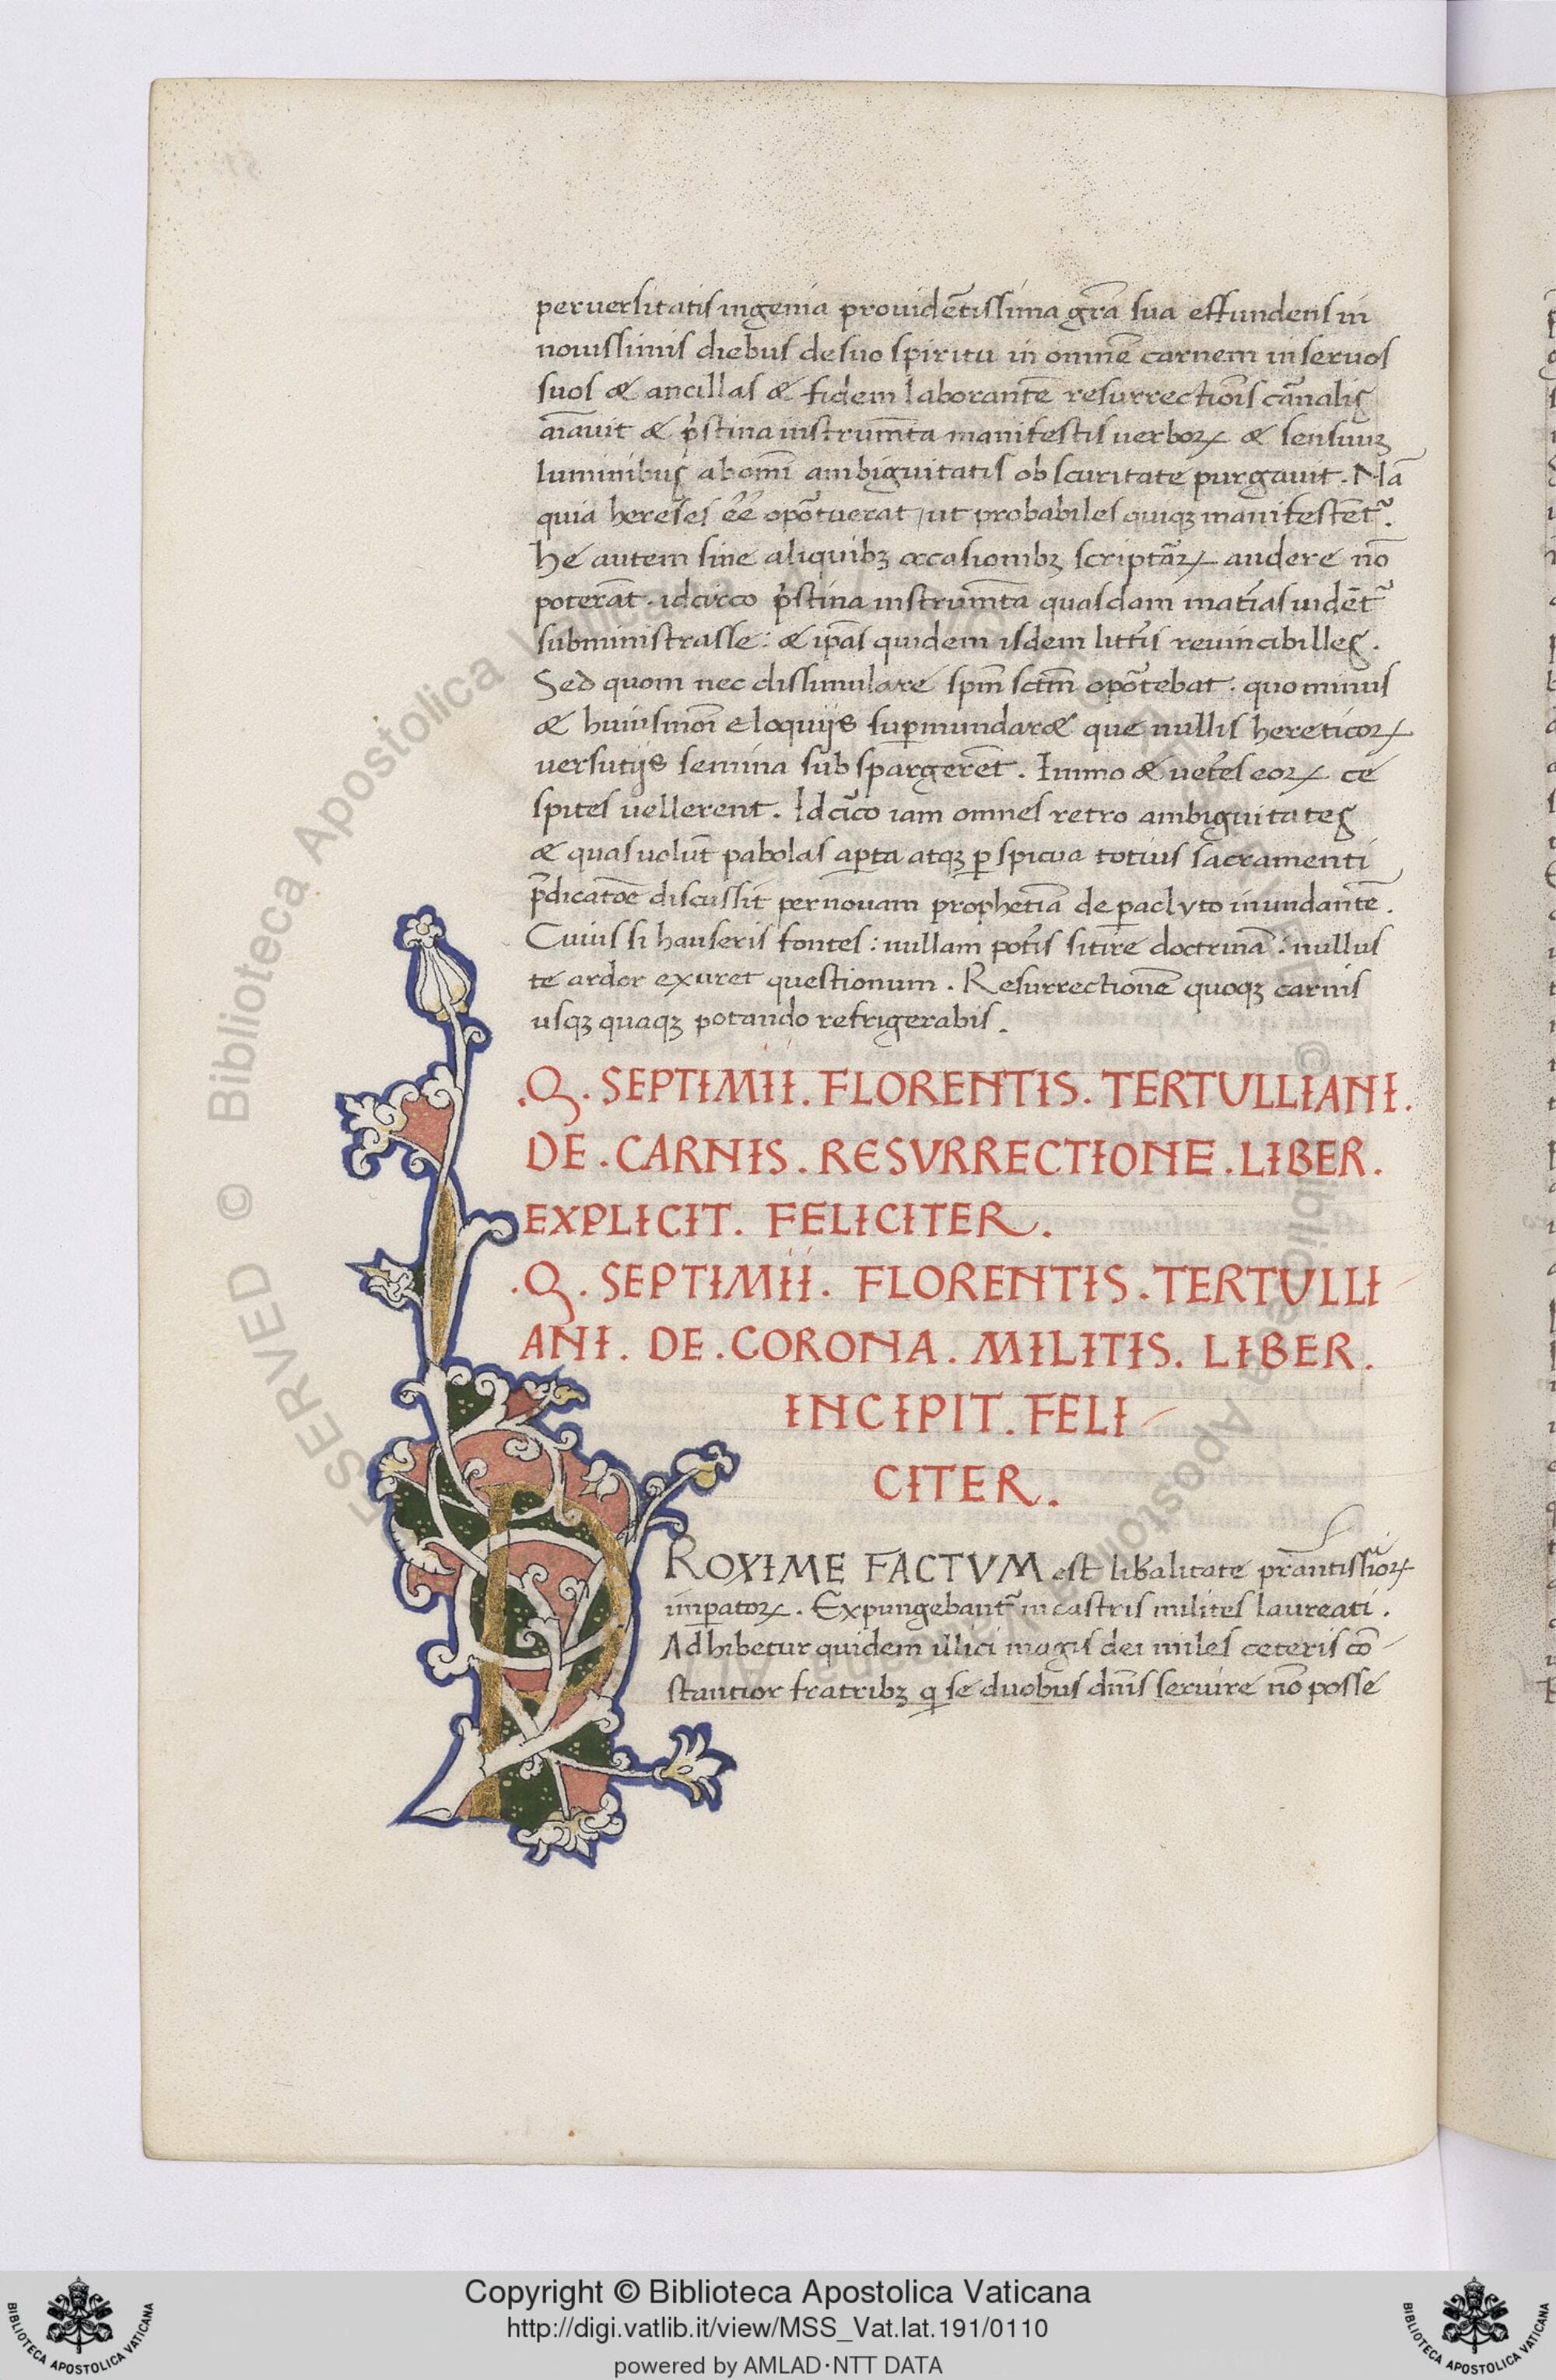 peruersitatis ingenia prouidẽtissima gr̃a sua effundens in
nouissimis diebus de suo spiritu in omnẽ carnem in seruos
suos & ancillas & fidem laborantẽ resurrectiõis cãnalis
aĩauit & p̃stina instrum̃ta manifestis uerboꝝ & sensuuꝫ
luminibus ab omĩ ambiguitatis obscuritate purgauit. Nã
quia hereses ẽẽ opõtuerat, ut probabiles quiqꝫ manifestẽt᷑.
he autem sine aliquibꝫ occasionibꝫ scriptãꝝ audere nõ
poterãt. idcirco p̃stina instrum̃ta quasdam mat̃ias uidẽt᷑
subministrasse: & ip̃as quidem isdem litt̃is reuincibilles.
Sed quom nec dissimulare sp̃m sc̃tm opõtebat. quominus
& huiusmõi eloquijs suꝑmundaret que nullis hereticoꝝ
uersutijs semina subspargerẽt. Immo & uet̃es eoꝝ ce
spites uellerent. Idc̃ico iam omnes retro ambiguitates
& quas uolũt pabolas aꝑta atqꝫ ꝑspicua totius sacramenti
p̃dicatõe discussit per nouam prophetiã de paclyto inundantẽ.
Cuius si hauseris fontes: nullam pot̃is sitire doctrinã: nullus
te ardor exuret questionum. Resurrectionẽ quoqꝫ carnis
usqꝫ quaqꝫ potando refrigerabis.
.Q. SEPTIMII. FLORENTIS. TERTULLIANI.
DE. CARNIS. RESVRRECTIONE. LIBER.
EXPLICIT. FELICITER.
.Q. SEPTIMII. FLORENTIS. TERTULLI
ANI. DE. CORONA. MILITIS. LIBER.
INCIPIT. FELI
CITER.
PROXIME FACTVM est libalitate pr̃antissĩoꝝ
imꝑatoꝝ. Expungebant᷑ in castris milites laureati.
Adhibetur quidem illici magis dei miles ceteris cõ
stantior fratribꝫ q se duobus dñis seruire nõ posse
Copyright © Biblioteca Apostolica Vaticana
http://digi.vatlib.it/view/MSS_Vat.lat.191/0110
powered by AMLAD·NTT DATA
BIBLIOTECA APOSTOLICA VATICANA
BIBLIOTECA APOSTOLICA VATICANA